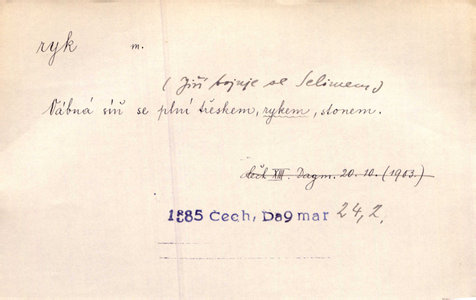 ryk m.
(Jiří bojuje se Selimem)
Vábná síň se plní třeskem, rykem, stonem.
Čech XIII. Dagm. 20. 10. (1903.)
1885 Čech, Dagmar 24,2.